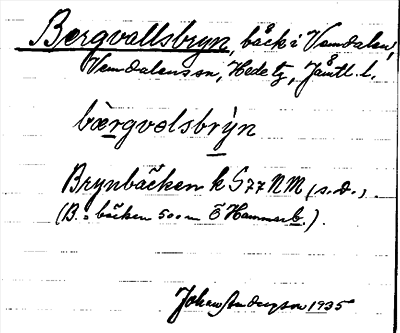 Bergvallsbryn, bäck i Vemdalen,
Vemdalens sn, Hede tg, Jämtl. l.
bærgvalsbrỳn
Brynbäcken k S77 NM (s.d.).
(B. = bäcken 500 m Ö Hammarb.).
Johan Andersson 1935